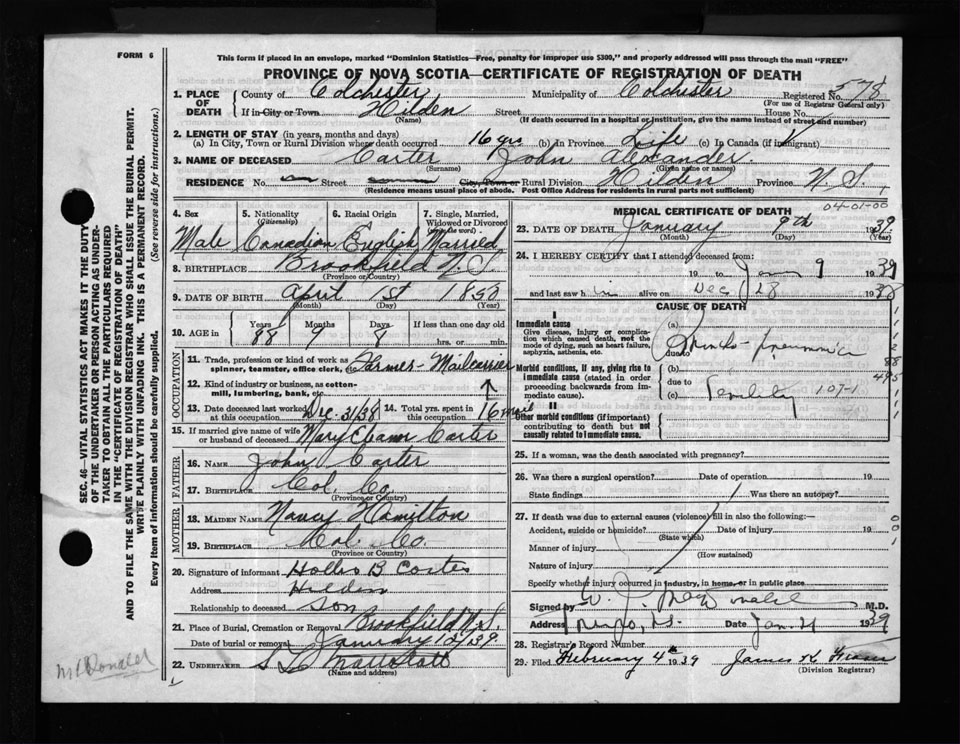 FORM 6
This form if placed in an envelope, marked "Dominion Statistics—Free, penalty for improper use $300," and properly addressed will pass through the mail "FREE"
PROVINCE OF NOVA SCOTIA—CERTIFICATE OF REGISTRATION OF DEATH
1. PLACE OF DEATH
County of Colchester Municipality of Colchester Registered No. 578
(For use of Registrar General only)
If in City or Town Hilden Street House No.
(Name) (If death occurred in a hospital or institution, give the name instead of street and number)
2. LENGTH OF STAY (in years, months and days)
(a) In City, Town or Rural Division where death occurred 16 yrs (b) In Province Life (c) In Canada (if immigrant)
3. NAME OF DECEASED Carter John Alexander.
(Surname) (Given name or names)
RESIDENCE No. Street City, Town or Rural Division Hilden Province N.S.
(Residence means usual place of abode. Post Office Address for residents in rural parts not sufficient)
4. Sex 5. Nationality (Citizenship) 6. Racial Origin 7. Single, Married, Widowed or Divorced (write the word)
Male Canadian English Married
8. BIRTHPLACE Brookfield N.S.
(Province or Country)
9. DATE OF BIRTH April 1st 1850
(Month) (Day) (Year)
10. AGE in Years Months Days If less than one day old
88 9 8 hrs. or min.
OCCUPATION
11. Trade, profession or kind of work as spinner, teamster, office clerk, etc. Farmer - Mailcarrier
12. Kind of industry or business, as cotton-mill, lumbering, bank, etc.
13. Date deceased last worked at this occupation Dec. 31/38 14. Total yrs. spent in this occupation 16 mail
15. If married give name of wife or husband of deceased Mary Eleanor Carter
FATHER
16. NAME John Carter
17. BIRTHPLACE Col. Co.
(Province or Country)
MOTHER
18. MAIDEN NAME Nancy Hamilton
19. BIRTHPLACE Col. Co.
(Province or Country)
20. Signature of informant Hollis B Carter
Address Hilden
Relationship to deceased son
21. Place of Burial, Cremation or Removal Brookfield N.S.
Date of burial or removal January 12/39
22. UNDERTAKER S L Mattatall
(Name and address)
MEDICAL CERTIFICATE OF DEATH 04-01-00
23. DATE OF DEATH January 9th 1939
(Month) (Day) (Year)
24. I HEREBY CERTIFY that I attended deceased from:
19 to Jan 9 1939
and last saw him alive on Dec 28 1938
CAUSE OF DEATH
I
Immediate cause
Give disease, injury or complication which caused death, not the mode of dying, such as heart failure, asphyxia, asthenia, etc.
(a) Broncho-pneumonia
due to
Morbid conditions, if any, giving rise to immediate cause (stated in order proceeding backwards from immediate cause).
(b)
due to
(c) Senility 107-1
II
Other morbid conditions (if important) contributing to death but not causally related to immediate cause.
25. If a woman, was the death associated with pregnancy?
26. Was there a surgical operation? Date of operation 19
State findings Was there an autopsy?
27. If death was due to external causes (violence) fill in also the following:—
Accident, suicide or homicide? Date of injury 19
(State which)
Manner of injury
(How sustained)
Nature of injury
Specify whether injury occurred in industry, in home, or in public place
Signed by M.D.
Address Truro, N.S. Date Jan. 21 1939
28. Registrar's Record Number
29. Filed February 4th 1939 James K Fraser
(Division Registrar)
SEC. 46—VITAL STATISTICS ACT MAKES IT THE DUTY
OF THE UNDERTAKER OR PERSON ACTING AS UNDER-
TAKER TO OBTAIN ALL THE PARTICULARS REQUIRED
IN THE "CERTIFICATE OF REGISTRATION OF DEATH"
AND TO FILE THE SAME WITH THE DIVISION REGISTRAR WHO SHALL ISSUE THE BURIAL PERMIT.
WRITE PLAINLY WITH UNFADING INK. THIS IS A PERMANENT RECORD.
Every item of information should be carefully supplied. (See reverse side for instructions.)